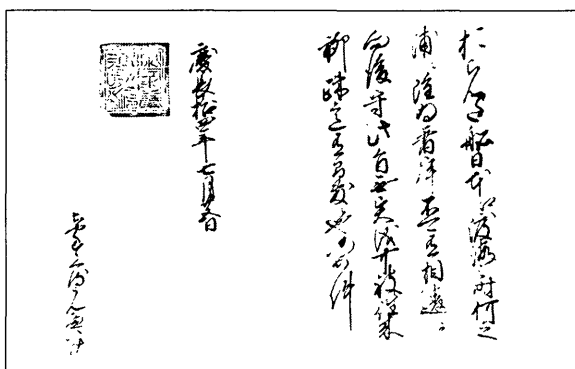 おらんた船日本江渡海之時何之
浦ニ雖為着津不可有相違候
向後守此旨無異儀可被往来
聊疎意有間敷候也仍如件
慶長拾四年七月廿五日